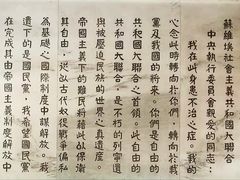 蘇維埃社會主義共和國大聯合
中央執行委員會親愛的同志：
我在此身患不治之症。我的
心念此時轉向於你們，轉向於我
黨及我國的將來。你們是自由的
共和國大聯合之首領。此自由的
共和國大聯合，是不朽的列寧遺
與被壓迫民族的世界之真遺產。
帝國主義下的難民將藉此以保衛
其自由，從以古代奴役戰爭偏私
為基礎之國際制度中謀解放。我
遺下的是國民黨。我希望國民黨
在完成其由帝國主義制度解放中